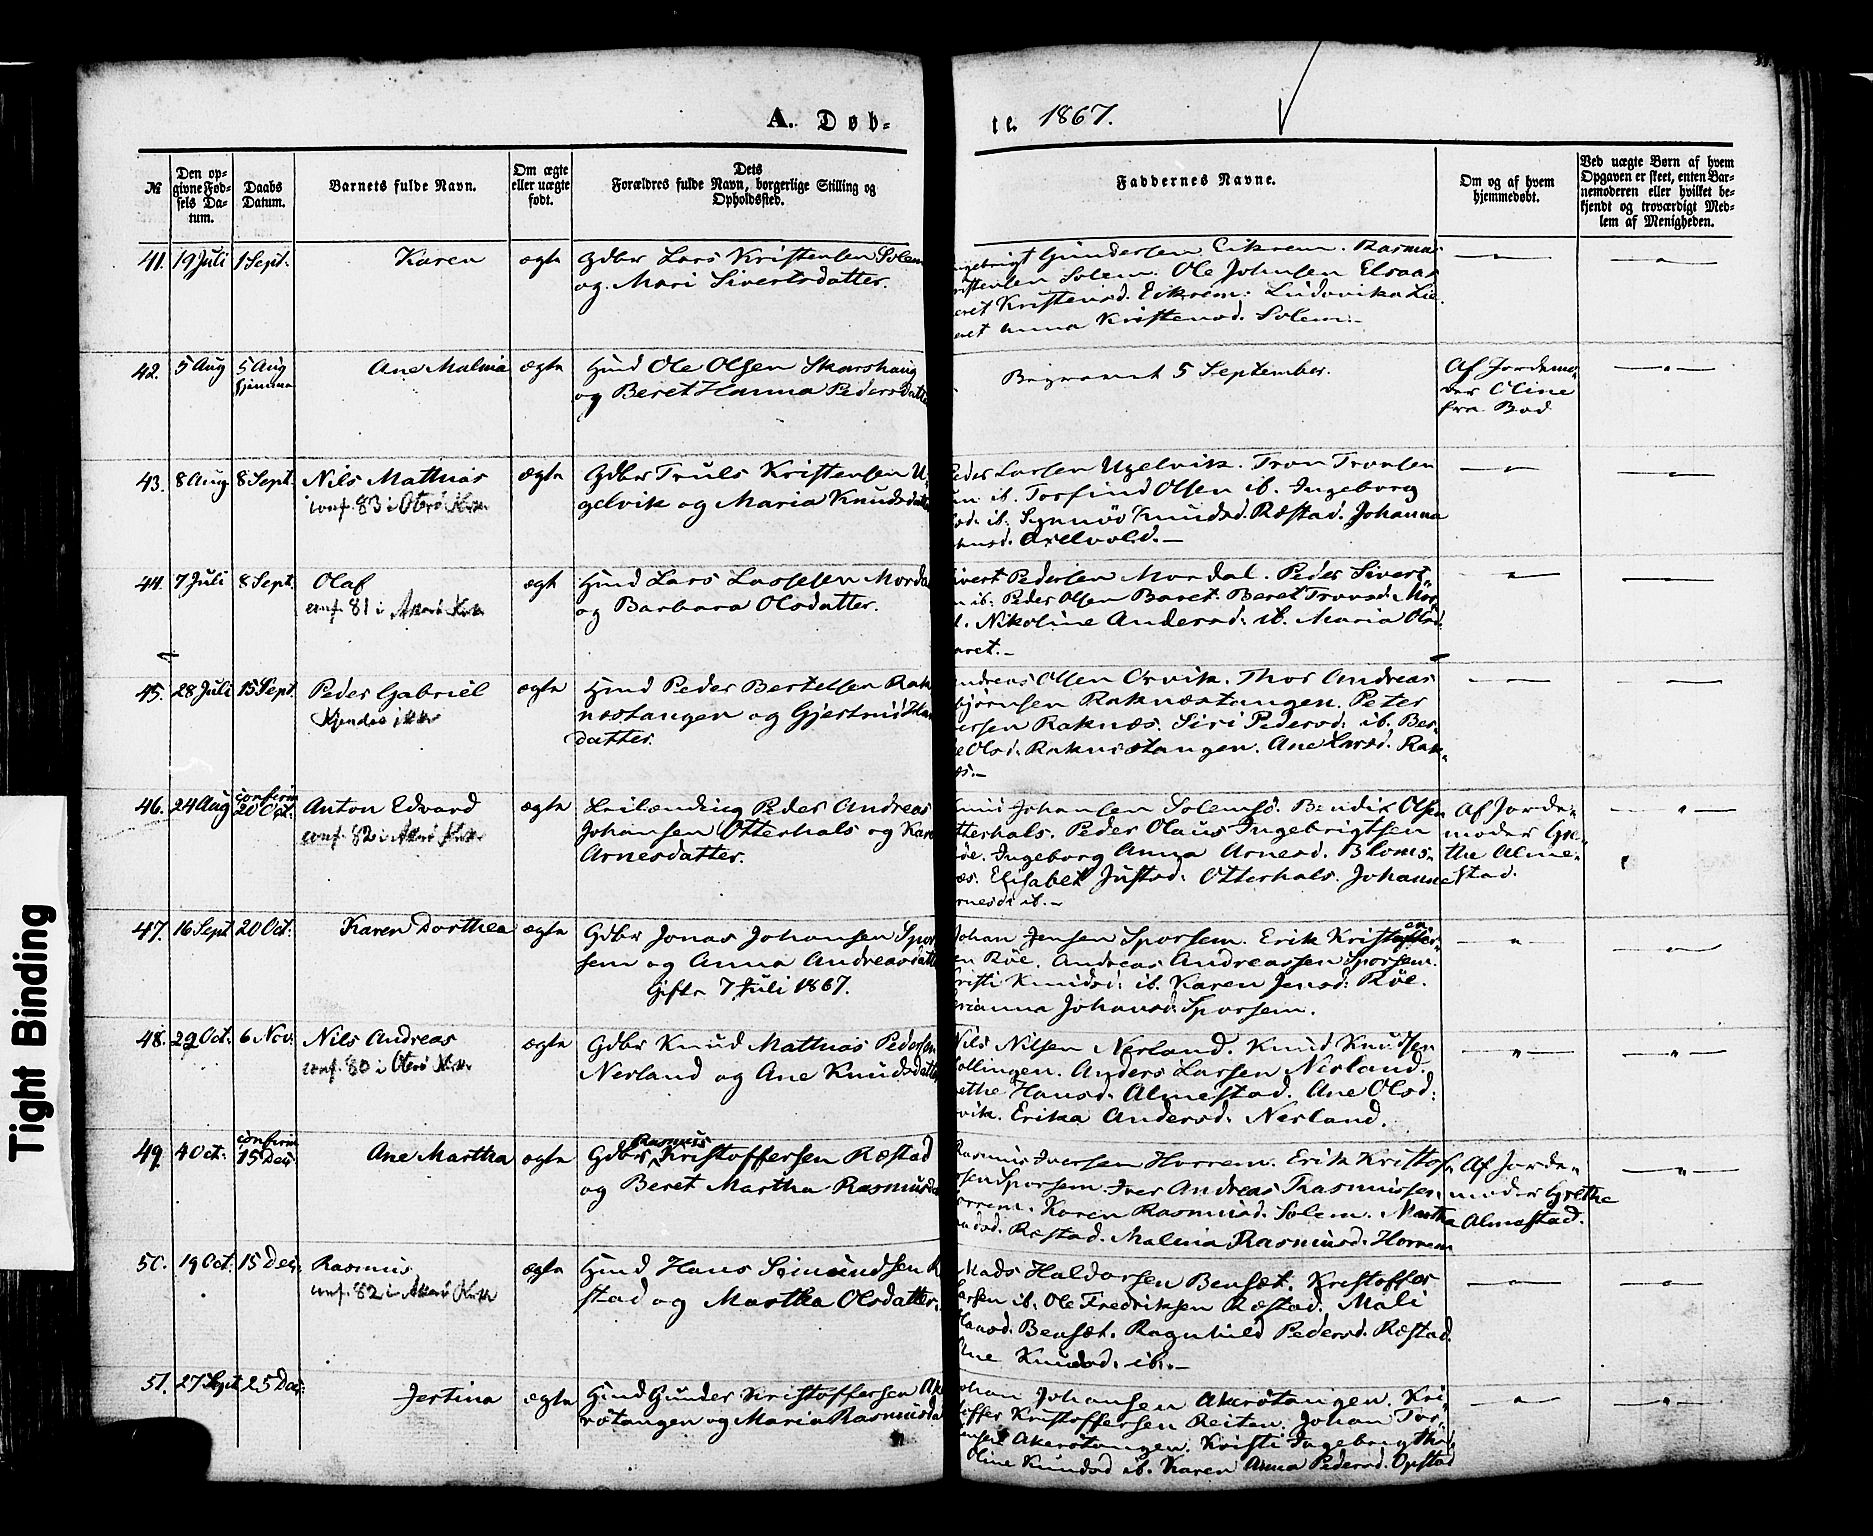 A. Døb-
te. 1867.
№
Den op-
givne Fød-
sels Da-
tum.
Daabs
Datum.
Barnets fulde Navn.
Om ægte
eller uægte
født.
Dets
Forældres fulde Navn, borgerlige Stilling og
Opholdssted.
Faddernes Navne.
Om og af hvem
hjemmedøbt.
Ved uægte Børn af hvem
Opgaven er skeet, enten Bar-
nemoderen eller hvilket be-
kjendt og troværdigt Med-
lem af Menigheden.
41. 19 Juli 1 Sept. Karen ægte Gdbr Lars Kristensen Solem
og Mari Sivertsdatter.
Gundersen Eikrem. Rasmus
Solem. Ole Johnsen Elsaas
Kristensd. Eikrem. Ludovika Lie.
Anna Kristensd. Solem.-
42. 5 Aug 5 Aug hjemme Ane Malina ægte Hmd Ole Olsen Skarshaug
og Beret Hanna Pedersdatter
Begravet 5 September.
Af Jordemo-
der Oline
fra Bod
43. 8 Aug 8 Sept. Nils Mathias ægte Gdbr Truls Kristensen U-
conf. 83 i Otrø Kirke
gelvik og Maria Knudsdatter
Peder Larsen Ugelvik. Tron Tronsen
ib. Torfind Olsen ib. Ingeborg
ib. Synnøv Knudsd. Ræstad. Johanna
Arelvold.-
44. 7 Juli 8 Sept. Olaf ægte Hmd Lars Lassesen Mordal
conf. 81 i Akerø Kirke
og Barbara Olsdatter.
Sivert Pedersen Mordal. Peder Sivert-
ib. Peder Olsen Baret. Beret Tronsd. Mor-
Nikoline Andersd. ib. Maria Olsd.
Baret.-
45. 28 Juli 15 Sept. Peder Gabriel ægte Hmd Peder Bertelsen Rak-
Kjendes ikke
næstangen og Gjertrud
datter.
Andreas Olsen Orvik. Thor Andreas
Raknæstangen. Peter
Raknæs. Siri Pedersd. ib. Ber-
Olsd. Raknæstangen. Ane Larsd. Rak-
46. 24 Aug confirm 20 Oct. Anton Edvard ægte Leilænding Peder Andreas
conf. 82 i Akerø Kirke
Johansen Otterhals og Karen
Arnesdatter.
Johansen Solemsd. Bendix Olsen
Otterhals. Peder Olaus Ingebrigtsen
Røe. Ingeborg Anna Arnesd. Bloms-
Elisabet Justsd. Otterhals. Johanne
Arnesd. ib.-
Af Jorde-
moder Gre-
the Alme-
stad.
47. 16 Sept 20 Oct. Karen Dorthea ægte Gdbr Jonas Johansen Spor-
sem og Anna Andreasdatter
Gifte 7 Juli 1867.
Johan Jensen Sporsem. Erik Kristoffer-
sen Røe. Andreas Andreassen Sporsem.
Kristi Knudsd. ib. Karen Jensd. Røe.
Johansd. Sporsem.
48. 29 Oct. 6 Nov. Nils Andreas ægte Gdbr Knud Mathias Pedersen
conf. 80 i Otrø Kirke
Nerland og Ane Knudsdatter
Nils Nilsen Nerland. Knud Knudsen
Kollingen. Anders Larsen Nerland.
Grethe Hansd. Almestad. Ane Olsd.
Erika Andersd. Nerland.
49. 4 Oct. confirm 15 Dec. Ane Martha ægte Gdbr Rasmus Kristoffersen Ræstad
og Beret Martha Rasmusd.
Rasmus Iversen Horrem. Erik Kristof-
fersen Sporsem. Iver Andreas Rasmussen
Horrem. Karen Rasmusd. Solem. Martha
Ræstad. Malina Rasmusd. Horrem
Af Jorde-
moder Grethe
Almestad.
50. 19 Oct. 15 Dec. Rasmus ægte Hmd Hans Simundsen Ræ-
conf. 82 i Akerø Kirke
stad og Martha Olsdatter.
Mads Haldorsen Bensæt. Kristoffer
ib. Ole Fredriksen Ræstad. Mali
Hansd. Bensæt. Ragnhild Pedersd. Ræstad.
Ane Knudsd. ib.-
51. 27 Sept 25 Dec. Jertina ægte Hmd Gunder Kristoffersen Ake-
røtangen og Maria Rasmusda
Johan Johansen Akerøtangen. Kri-
stoffer Kristoffersen Reiten. Johan Tor-
Akerøtangen. Kristi Ingeborg
Oline Knudsd ib. Karen Anna Pedersd. Opstad
Tight Binding